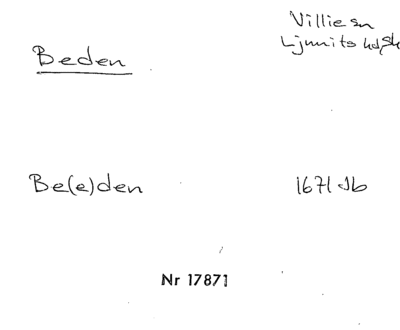 Beden
Villie sn
Ljunits hd, Sk
Be(e)den
1671 Jb
Nr 17871